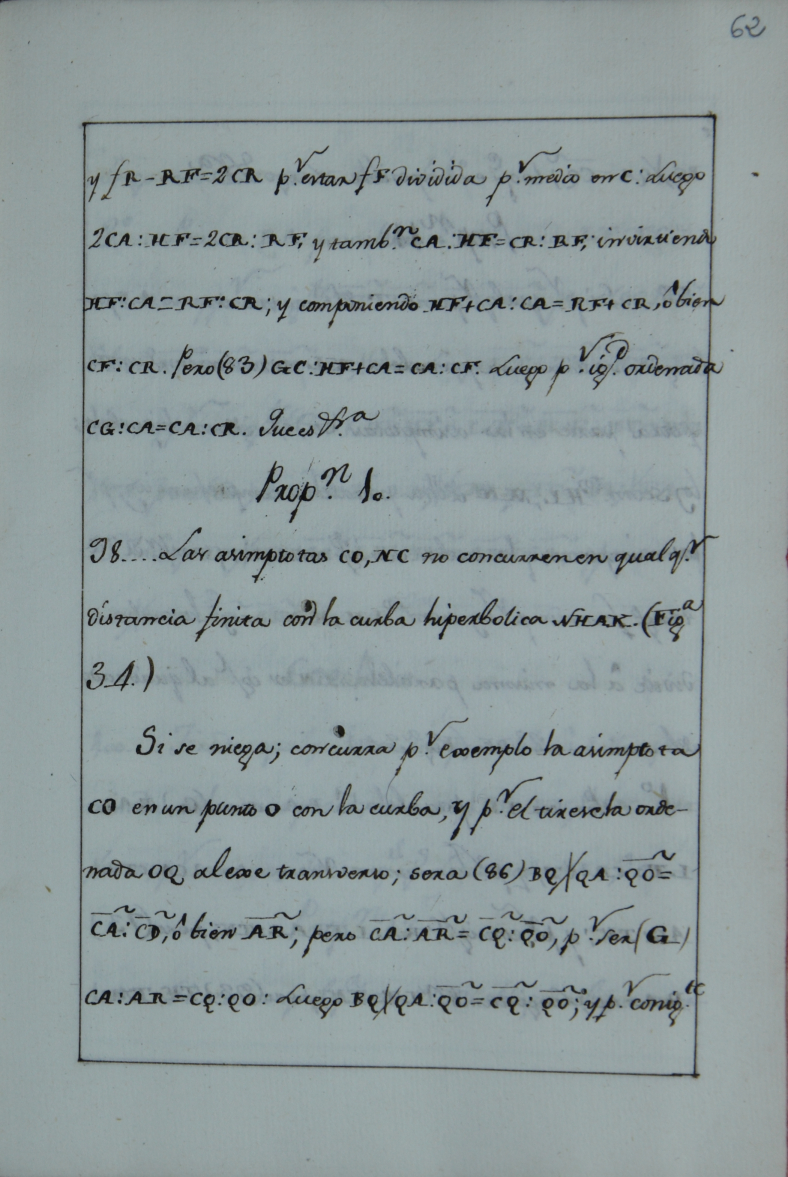 62
y fR - RF = 2CR p.r estar fF dividida p.r medio en C: Luego
2CA : HF = 2CR : RF, y tamb.n CA : HF = CR : RF; invirtiend
HF : CA = RF : CR; y componiendo HF + CA : CA = RF + CR, ô bien
CF : CR. Pero (83) GC : HF + CA = CA : CF. Luego p.r ig.d ordenada
CG : CA = CA : CR. Que es &.a
Prop.n 1.
98.... Las asimptotas CO, NC no concurren en qualq.r
distancia finita con la curba hiperbolica NHAK. (Fig.a
34.)
Si se niega; concurra p.r exemplo la asimptota
CO en un punto O con la curba, y p.r el tirese la orde-
nada OQ al exe transverso; sera (86) BQ × QA : QO~ =
CA~ : CD~, ô bien AR~; pero CA~ : AR~ = CQ~ : QO~, p.r ser (G)
CA : AR = CQ : QO : Luego BQ × QA : QO~ = CQ~ : QO~; y p.r consig.te